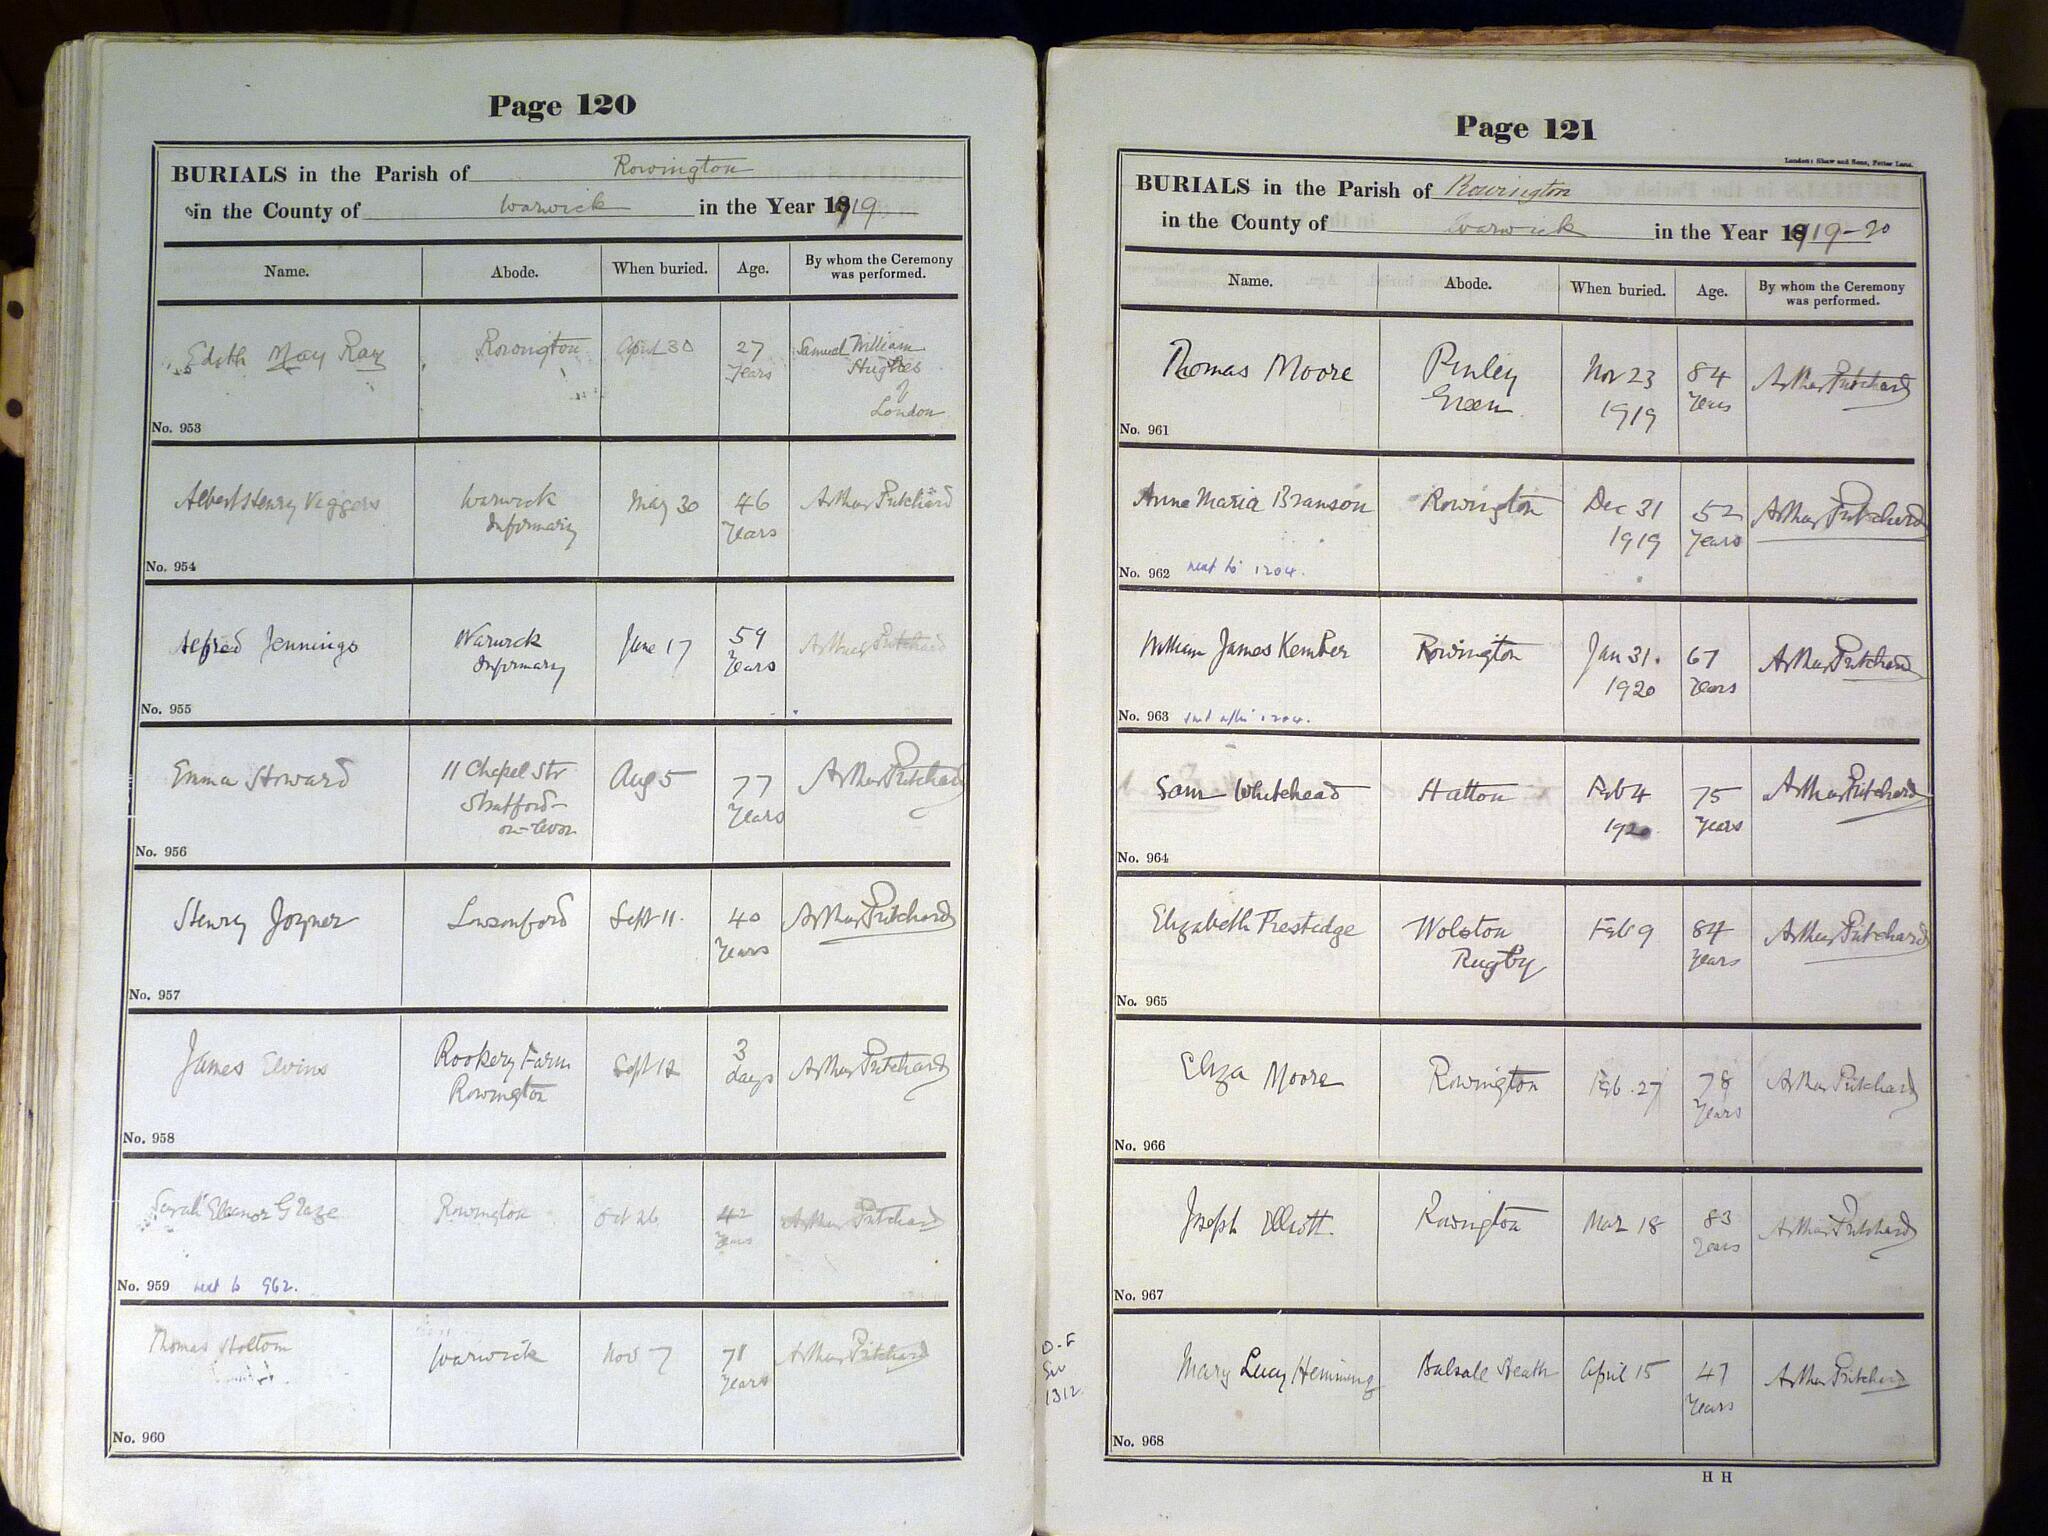 Page 120
BURIALS in the Parish of Rowington
in the County of Warwick in the Year 1919
Name. Abode. When buried. Age. By whom the Ceremony was performed.
Edith May Ray Rowington April 30 27 Years Samuel William Hughes of London
No. 953
Albert Henry Veggers Warwick Infirmary May 30 46 Years Arthur Pritchard
No. 954
Alfred Jennings Warwick Infirmary June 17 59 Years Arthur Pritchard
No. 955
Emma Howard 11 Chapel Str Stratford-on-Avon Aug 5 77 Years Arthur Pritchard
No. 956
Henry Joyner Lowsonford Sept 11. 40 Years Arthur Pritchard
No. 957
James Elvins Rookery Farm Rowington Sept 12 3 days Arthur Pritchard
No. 958
Sarah Eleanor Glaze Rowington Oct 26 42 Years Arthur Pritchard
No. 959 next to 962.
Thomas Holtom Warwick Nov 7 78 Years Arthur Pritchard
No. 960
Page 121
London: Shaw and Sons, Fetter Lane.
BURIALS in the Parish of Rowington
in the County of Warwick in the Year 1919-20
Name. Abode. When buried. Age. By whom the Ceremony was performed.
Thomas Moore Pinley Green Nov 23 1919 84 Years Arthur Pritchard
No. 961
Anne Maria Branson Rowington Dec 31 1919 52 Years Arthur Pritchard
No. 962 next to 1204.
William James Kember Rowington Jan 31. 1920 67 Years Arthur Pritchard
No. 963 1204.
Sam Whitehead Hatton Feb 4 1920 75 Years Arthur Pritchard
No. 964
Elizabeth Prestidge Wolston Rugby Feb 9 84 Years Arthur Pritchard
No. 965
Eliza Moore Rowington Feb. 27 78 Years Arthur Pritchard
No. 966
Joseph Elliott Rowington Mar 18 83 Years Arthur Pritchard
No. 967
Mary Lucy Hemming Balsale Heath April 15 47 Years Arthur Pritchard
No. 968
1312
H H